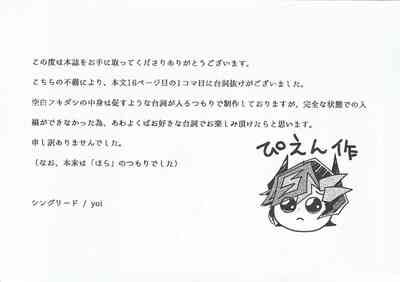 この度は本誌をお手に取ってくださりありがとうございます。
こちらの不備により、本文16ページ目の1コマ目に台詞抜けがございました。
空白フキダシの中身は促すような台詞が入るつもりで制作しておりますが、完全な状態での入
稿ができなかった為、あわよくばお好きな台詞でお楽しみ頂けたらと思います。
申し訳ありませんでした。
(なお、本来は「ほら」のつもりでした)
ぴえん作
シングリード / yoi